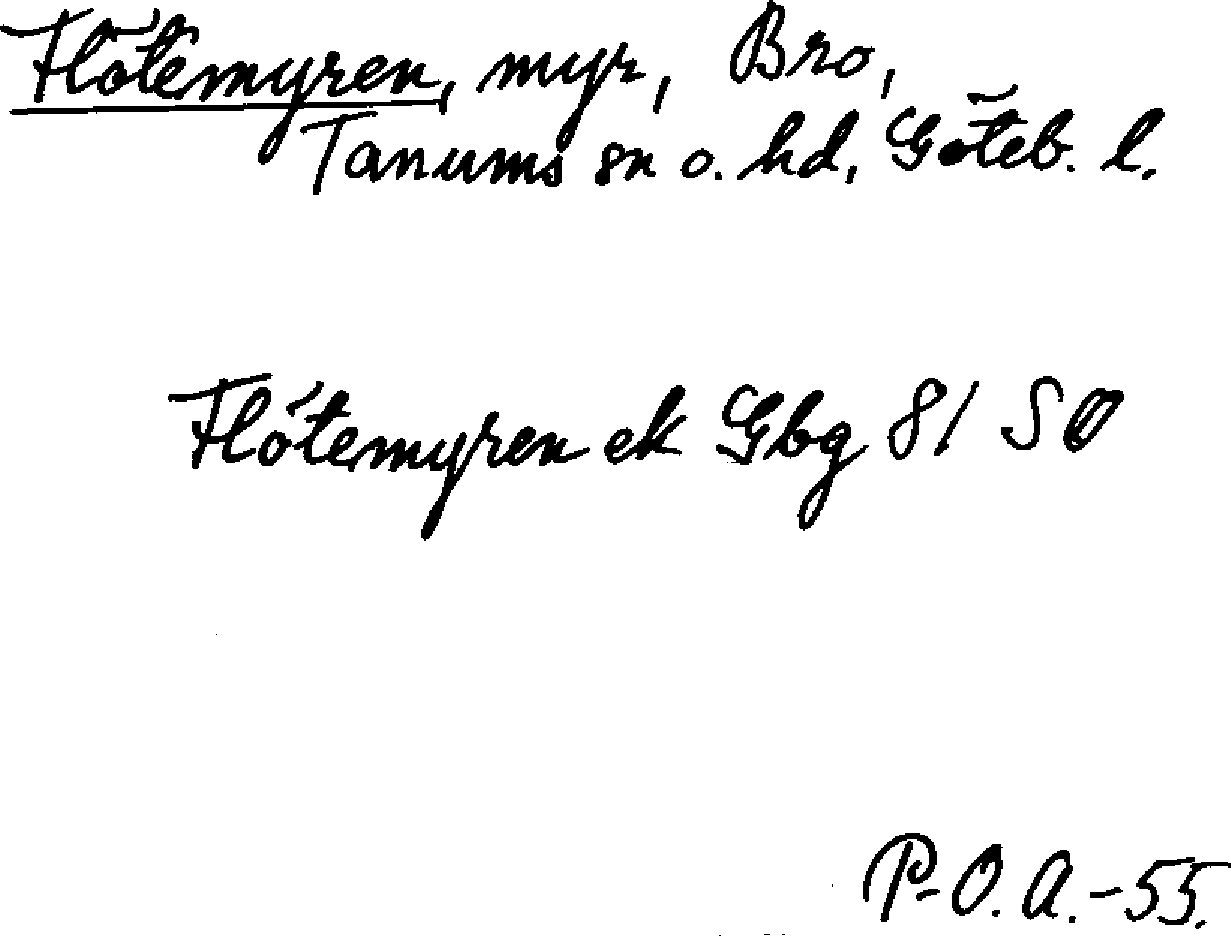 Flötemyren, myr, Bro,
Tanums sn o. hd, Göteb. l.
Flötemyren ek Gbg 81 SO
P-O. A.-55.